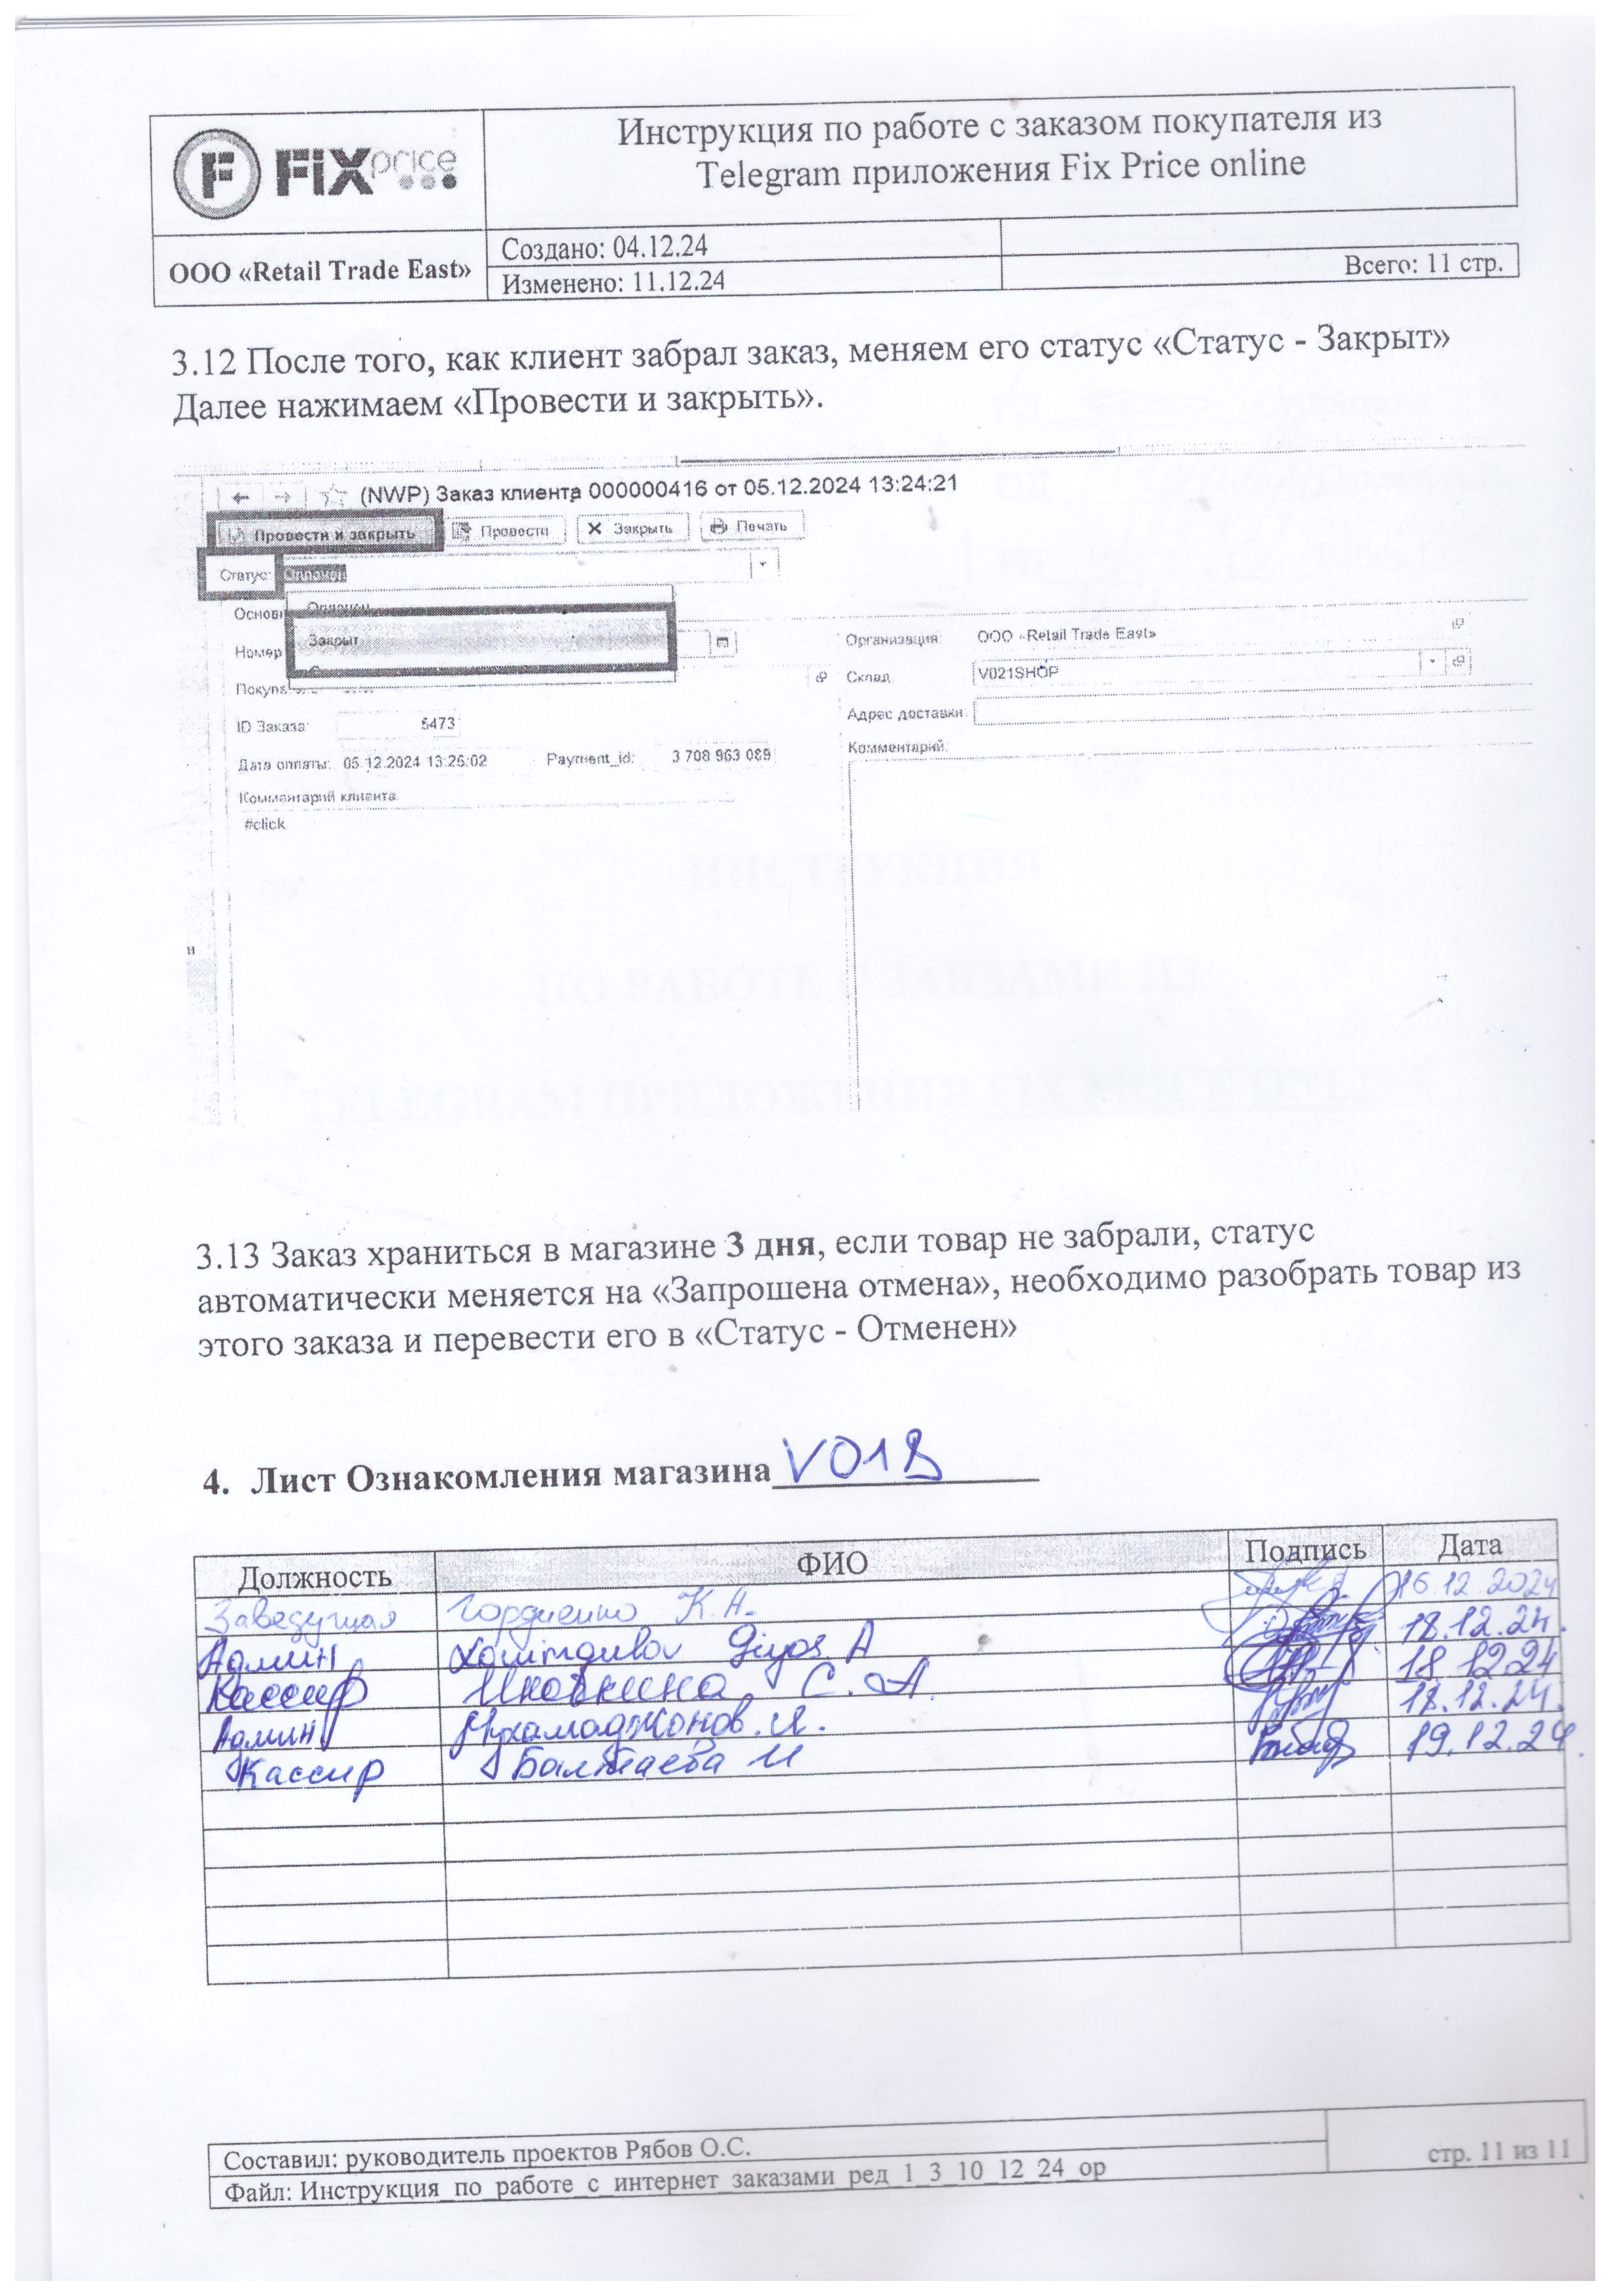 FiX price
Инструкция по работе с заказом покупателя из
Telegram приложения Fix Price online
ООО «Retail Trade East»
Создано: 04.12.24
Изменено: 11.12.24
Всего: 11 стр.
3.12 После того, как клиент забрал заказ, меняем его статус «Статус - Закрыт»
Далее нажимаем «Провести и закрыть».
(NWP) Заказ клиента 000000416 от 05.12.2024 13:24:21
Провести и закрыть Провести Закрыть Печать
Статус: Оплачен
Оплачен
Закрыт
Номер
Организация: ООО «Retail Trade East»
Склад: V021SHOP
ID Заказа: 5473
Адрес доставки:
Дата оплаты: 05.12.2024 13:26:02 Payment_id: 3 708 963 089
Комментарий:
Комментарий клиента
#click
и
3.13 Заказ храниться в магазине 3 дня, если товар не забрали, статус
автоматически меняется на «Запрошена отмена», необходимо разобрать товар из
этого заказа и перевести его в «Статус - Отменен»
4. Лист Ознакомления магазина
Должность ФИО Подпись Дата
Заведущая Гордиенко К.А. 16.12.2024
Админ Giyos A 18.12.24.
Кассир С.А. 18 12 24
Админ Мухамаджонов.И. 18.12.24.
Кассир Балтаева И 19.12.24.
Составил: руководитель проектов Рябов О.С.
Файл: Инструкция_по_работе_с_интернет_заказами_ред_1_3_10_12_24_ор
стр. 11 из 11